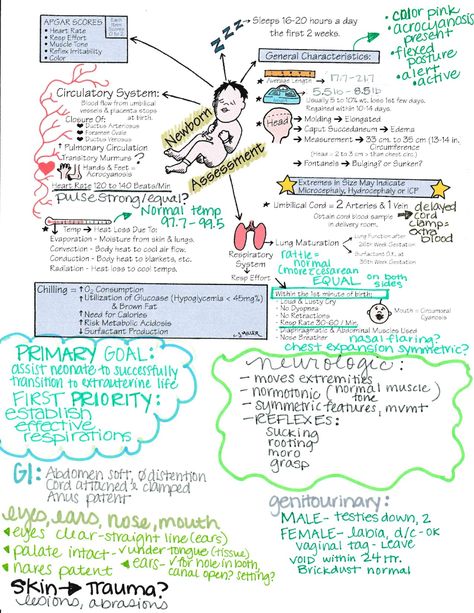 APGAR SCORES
Each Item Scored 0 to 2
• Heart Rate
• Resp Effort
• Muscle Tone
• Reflex Irritability
• Color
ZZZ
Sleeps 16-20 hours a day
the first 2 weeks.
• color pink
• acrocyanosis present
• flexed posture
• alert
• active
General Characteristics:
Average Length - 17.7-21.7
5.5 lb - 8.5 lb
Usually 5 to 10% wt. loss first few days.
Regained within 10-14 days.
Head
Molding → Elongated
Caput Succedaneum → Edema
Measurement → 33 cm. to 35 cm (13-14 in.
Circumference
(Head = 2 to 3 cm > than chest circ)
Fontanels → Bulging? or Sunken?
Circulatory System:
Blood flow from umbilical
vessels & placenta stops
at birth.
Closure Of:
Ductus Arteriosus
Foramen Ovale
Ductus Venosus
↑ Pulmonary Circulation
Transitory Murmurs ?
Hands & Feet =
Acrocyanosis
Heart Rate 120 to 140 Beats/Min
pulse strong/equal?
Newborn
Assessment
Extremes in Size May Indicate
Microcephaly, Hydrocephaly or ICP
Umbilical Cord = 2 Arteries & 1 Vein
Obtain cord blood sample
in delivery room.
delayed
cord
clamp =
extra
blood
Normal temp
97.7 - 99.5
↓ Temp → Heat Loss Due To:
Evaporation - Moisture from skin & lungs.
Convection - Body heat to cool air flow.
Conduction - Body heat to blankets, etc.
Radiation - Heat loss to cool temps.
Respiratory
System
Resp Effort
Lung Maturation
rattle =
normal
(more c cesarean
EQUAL on both sides
Chilling = ↑ O2 Consumption
↑ Utilization of Glucose (Hypoglycemia < 45mg%)
& Brown Fat
↑ Need for Calories
↑ Risk Metabolic Acidosis
↓ Surfactant Production
Within the 1st minute of birth:
Loud & Lusty Cry
No Dyspnea
No Retractions
Resp Rate 30-60 / Min.
Diaphragmatic & Abdominal Muscles Used
Nose Breather
Mouth = Circumoral
Cyanosis
nasal flaring?
chest expansion symmetric?
PRIMARY GOAL:
assist neonate to successfully
transition to extrauterine life
FIRST PRIORITY:
establish
effective
respirations
neurologic:
- moves extremities
- normotonic (normal muscle tone
- symmetric features, mvmt
- REFLEXES:
sucking
rooting
moro
grasp
GI: Abdomen soft, Ø distention
Cord attached & clamped
Anus patent
eyes, ears, nose, mouth
eyes clear - straight line (ears)
palate intact - ✓ under tongue (tissue)
nares patent
ears - ✓ for hole in both,
canal open? setting?
skin → Trauma?
lesions, abrasions
genitourinary:
MALE - testies down, 2
FEMALE - labia, d/c - OK
vaginal tag - leave
void within 24 hr.
Brickdust normal